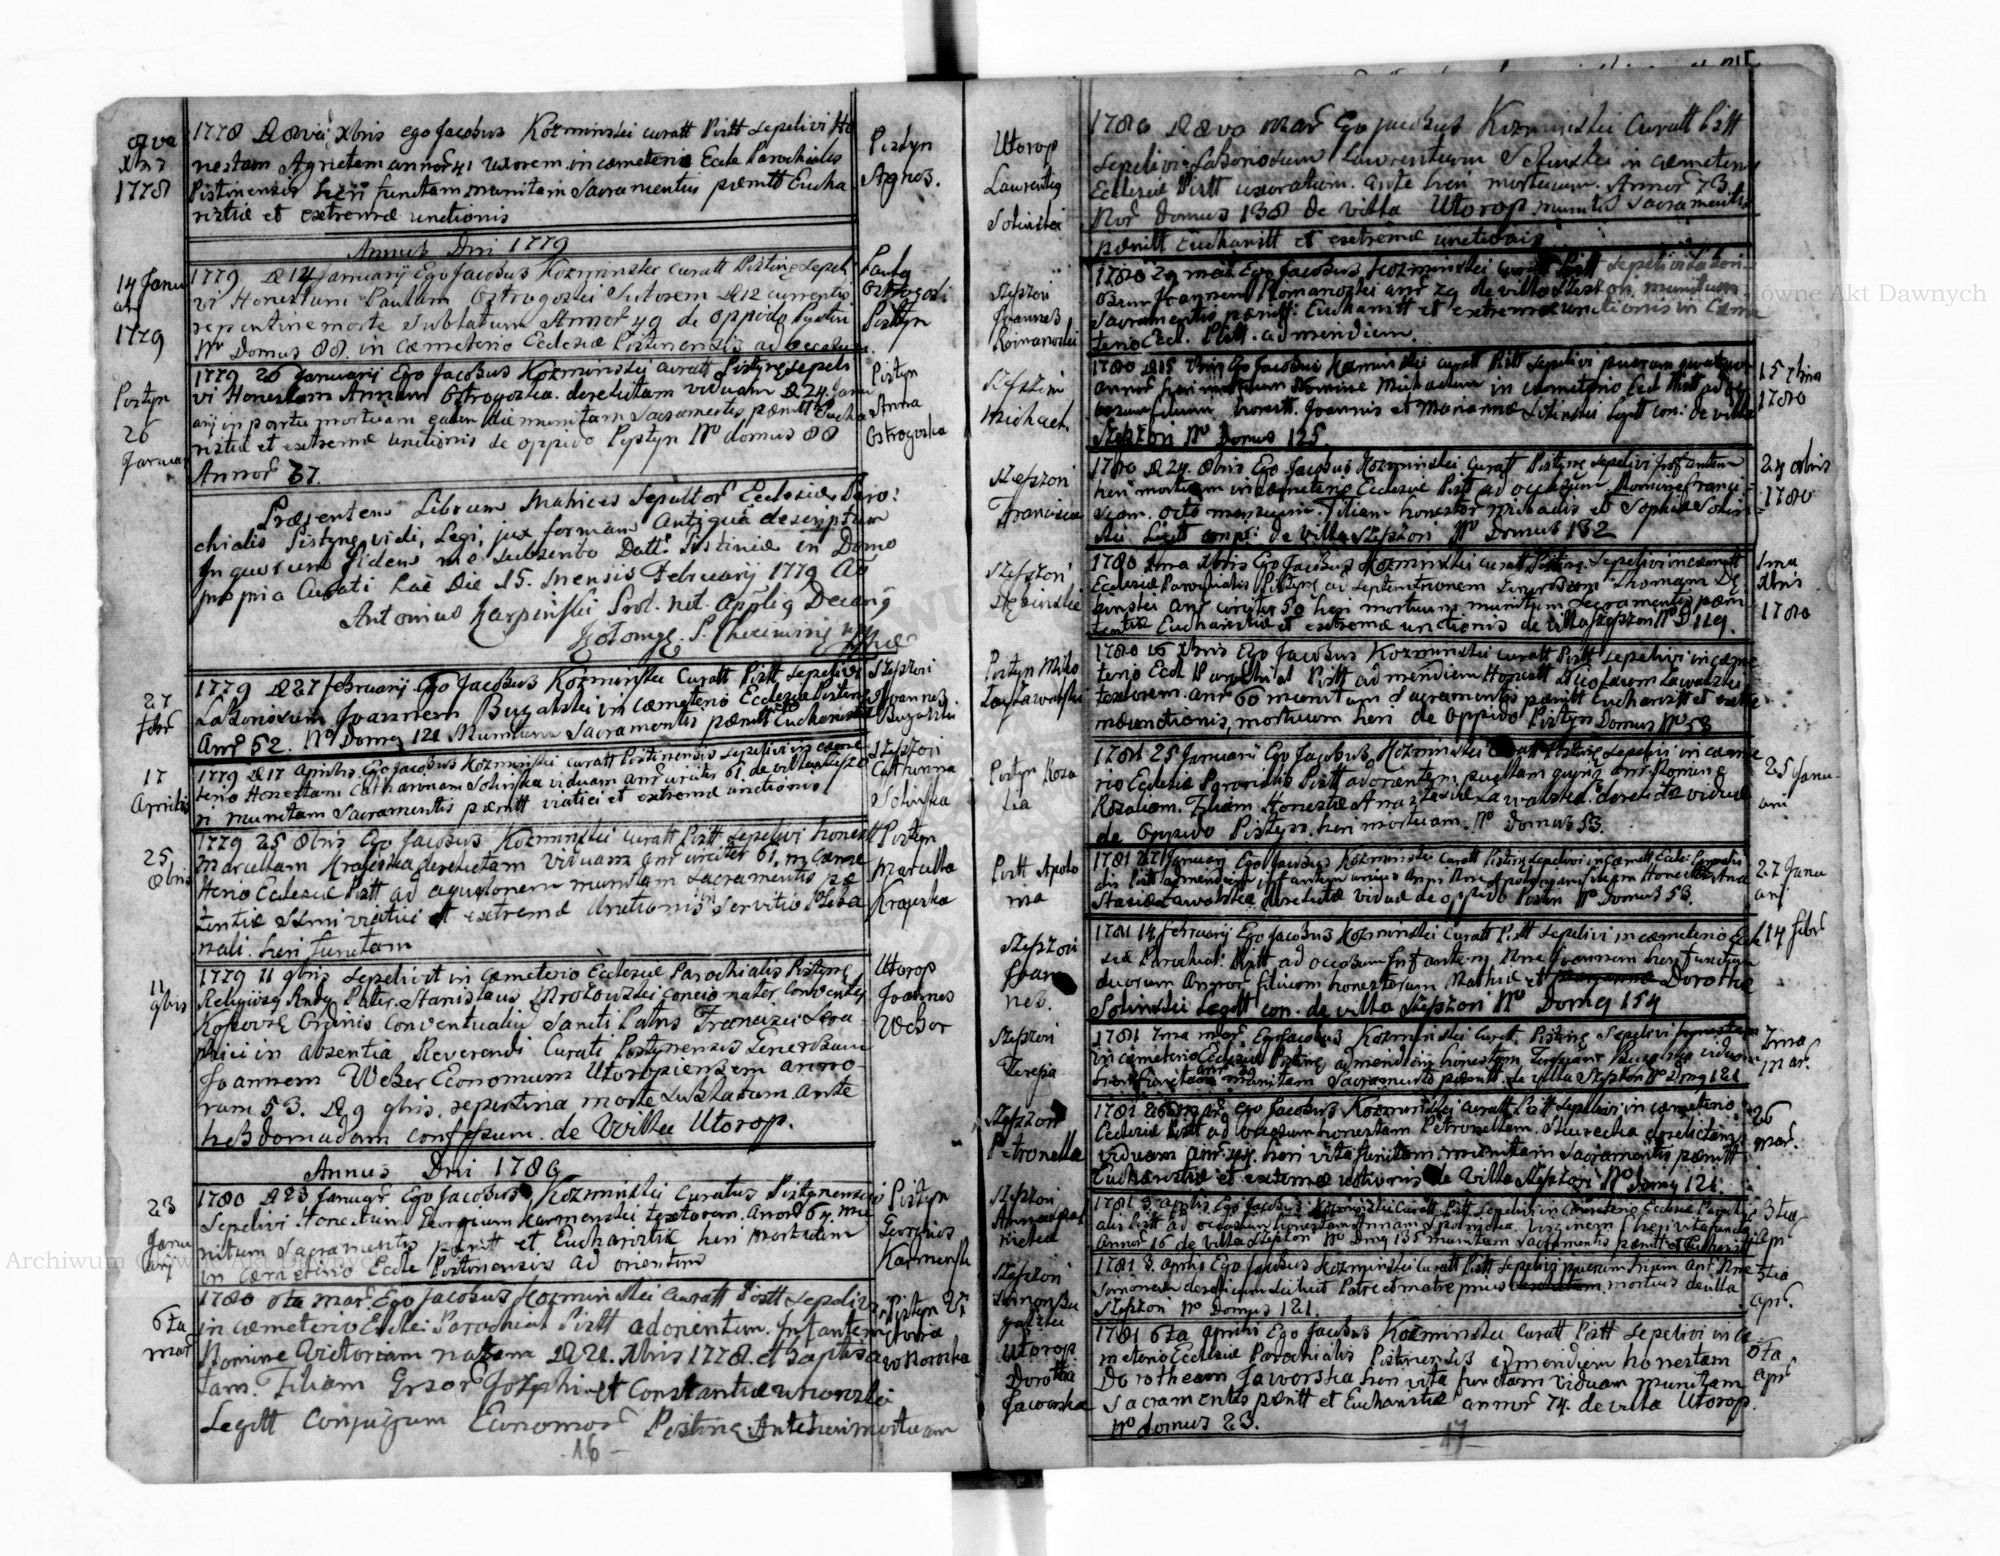 8va
Xbris
1778
1778 D 8va Xbris ego Jacobus Kozminski curatt Pistt sepelivi Ho
nestam Agnetem annor 41 uxorem in cæmeterio Eccle Parochialis
Pistinensis heri functam munitam Sacramentis pænitt Eucha
ristiæ et extremæ unctionis
Pistyn
Agnes.
Annus Dni 1779
14 Janu
arj
1779
1779 D 14 Januarij Ego Jacobus Kozminski curatt Pistinę sepeli
vi Honestum Paulum Ostrogoski Sutorem D 12 currentis
repentine morte sublatum Annor 49 de oppido Pystin
No Domus 88. in cæmeterio Ecclesiæ Pistinensis ad occasum.
Paulg
Ostrogoski
Pistyn
Pistyn
26
Januar
1779 26 Januarij Ego Jacobus Kozminski curatt Pistynę sepeli
vi Honestam Annam Ostrogoska derelictam viduam D 24 Janu
arij in partu mortuam eadem die munitam Sacramentis pænitt Eucha
ristiæ et extremæ unctionis de oppido Pystyn No domus 88
Annor 37.
Pistyn
Anna
Ostrogoska
Præsentem Librum Matrices Sepultor Ecclesiæ Paro:
chialis Pistynę vidi, Legi, jux formam Antiquâ descriptum
In quorum fidem me subscribo Datt: Pistiniæ in Domo
propria Curati hac Die 15. mensis Februarij 1779 Ao
Antonius Karpinski Prot. not. Applig Decang
27
febr
1779 D 27 februarij Ego Jacobus Kozminski Curatt Pistt sepelivi
Laboriosum Joannem Bugalski in cæmeterio Ecclesiæ Pistinę
Anr 52. No Domg 121 Munitum Sacramentis pænitt Eucharistiæ
Stepzori
Joannes
Bugalski
17
Aprilis
1779 D 17 Aprilis Ego Jacobus Kozminski curatt Pistinensis sepelivi in cæme
terio Honestam Catharinam Solinska viduam anr circiter 61 de villa Stepzo
ri munitam Sacramentis pænitt viatici et extremæ unctionis
Stepzori
Catharina
Solinska
25
8bris
1779 25 8bris Ego Jacobus Kozminski curatt Pistt sepelivi honest
Marcellam Krajeska derelictam viduam anr circiter 61, in cæme
terio Ecclesiæ Pistt ad aquilonem munitam Sacramentis pæ
tentiæ Semi viatici et extremæ Unctionis in servitio Pleba
nali. heri functam
Pistyn
Marcella
Krajeska
11
9bris
1779 11 9bris sepelivit in cæmeterio Ecclesiæ Parochialis Pistynę
Religiosg Andg Pater Stanislaus Mrozowski concionator Conventg
Kossovię Ordinis Conventualiu Sancti Patris Francisci Sera
phici in absentia Reverendi Curati Postynensis Generosum
Joannem Weber Economum Utoropiensem anno-
rum 53. D 9 9bris. repentina morte sublatum ante
hebdomadam confessum. de Villa Utorop.
Utorop
Joannes
Weber
Annus Dni 1780
23
Janu
arij
1780 D 23 Januar Ego Jacobus Kozminski Curatus Pistynensis
Sepelivi Honestum Georgium Karmenski textorem. annor 64. mu
nitum Sacramentis pænitt et Eucharistiæ heri mortuum
in cæmeterio Eccle Pistinensis ad orientem
Pistyn
Georgius
Karmenski
6ta
mar
1780 6ta mar: Ego Jacobus Kozminski curatt Pistt sepelivi
in cæmeterio Ecclei Parochial Pistt ad orientem. Infantem
Nomine Victoriam natam D 21. Xbris 1778. et baptisa
tam. Filiam Gnsor Josephi et Constantiæ
Legitt Conjugum Economor Pistinę. Anteheri mortuam
Pistyn Vi
ctoria
16
Utorop
Laurentig
Solinski
1780 D 8va mar Ego Jacobus Kozminski Curatt Pistt
Sepelivi Laboriosum Laurentium Solinski in cæmeterio
Ecclesiæ Pistt uxoratum. ante heri mortuum. Annor 73.
Nor Domus 138 de villa Utorop munitus Sacramentis
pænitt Eucharistt et extremæ unctionis
Stepzori
Joannes
Romanoski
1780 29 mai Ego Jacobus Kozminski curatt Pistt sepelivi Labori-
osum Joannem Romanoski anr 29 de villa Stepzori munitum
Sacramentis pænitt: Eucharistt et extremæ unctionis in cæme
terio Eccl. Pistt. ad meridiem.
Stepzori
Michael.
1780 D 15 7bris Ego Jacobus Kozminski curatt Pistt sepelivi puerum quatuor
annor heri mortuum Nomine Michaelem in cæmeterio Eccl Pistt ad oc
casum filium honestt. Joannis et Mariannæ Solinski Legitt con: de villa
Stepzori No Domus 125.
15 7bris
1780
Stepzori
Francisca
1780 D 24. 8bris Ego Jacobus Kozminski curatt Pistynę sepelivi Infantem
heri mortuam in cæmeterio Ecclesiæ Pistt ad occasum Nomine Franci
scam. octo mensium. filiam honestor Michaelis et Sophiæ Solin
ski Legitt conj: de villa Stepzori No Domus 132
24 8bris
1780
Stepzori
1780 1ma Xbris Ego Jacobus Kozminski curatt Pistinę. sepelivi in cæmett
Ecclesiæ Parochialis Pistynę ad septentrionem Generosum Thomam De
binski anr circiter 50 heri mortuum munitum Sacramentis pæni
tentiæ Eucharistiæ et extremæ unctionis de villa Stepzori No D 119.
1ma
Xbris
1780
Pistyn Miko
łay Lawalski
1780 16 Xbris Ego Jacobus Kozminski curatt Pistt sepelivi in cæme
terio Eccl Parochial Pistt ad meridiem Honestt Nicolaum Lawalski
textorem. anr 60 munitum Sacramentis pænitt Eucharistt et extre
mæ unctionis, mortuum heri de oppido Pistyn Domus No 53
Pistyn Roza
lia
1781 25 Januarij Ego Jacobus Kozminski curatt Pistinę sepelivi in cæme
rio Eccleiæ Parocialis Pistt ad orientem puellam quinq anr Nomine
Rosaliam. Filiam Honestæ Anastasiæ Lawalska. derelictæ viduæ
de Oppido Pistyn. heri mortuam. No Domus 53.
25 Janu-
arij
Pistt Apolo
nia
1781 27 Januari Ego Jacobus Kozminski curatt Pistinę sepelivi in cæmett Eccle: Parochi
alis Pistt ad meridiem infantem unius anni Nne Apoloniam filiam Honestæ Ana
stasiæ Lawalska derelictæ viduæ de oppido Pistin No Domus 53.
27 Janu
arj
Stepzori
Joan
nes.
1781 14 februarij Ego Jacobus Kozminski Curatt Pistt sepelivi in cæmeterio Eccle
siæ Parochial: Pistt ad occasum Infantem Nne Joannem heri functum
duorum Annor filium honestorum Mathiæ et Dorothæ
Solinski Legitt con. de villa Stepzori No Domg 154
14 febr
Stepzori
Teresia
1781 7ma mar: Ego Jacobus Kozminski Curat. Pistinę Sepelivi honestam
in cæmeterio Ecclesiæ Pistinę ad meridiem honestam Teresiam Bugalska viduam
munitam Sacramentis pænitt. de villa Stepzori No Domg 121
7ma
mar.
Stepzori
Petronella
1781 26 mar: ego Jacobus Kozminski curatt Pistt sepelivi in cæmeterio
Ecclesiæ Pistt ad occasum honestam Petronellam. derelictam
viduam anr 44. heri vita functam. munitam Sacramentis pænitt
Eucharistiæ et extremæ unctionis de villa Stepzori No Domg 121.
26
mar.
Stepzori
Anna
1781 3. aprilis Ego Jacobus Kozminski Curatt Pistt sepelivi in cæmeterio Ecclesiæ Parochi
alis Pistt ad occasum honestam Annam Virginem heri vita functam
Annor 16 de villa Stepzori No Domg 135 munitam Sacramentis pænitt et Eucharistt
3tia
apr
Stepzori
Simon Bu
galski
1781 3. Aprilis Ego Jacobus Kozminski curatt Pistt sepelivi puerum trium anr. Nne
Simonem derelictum Patre et matre prius mortuis de villa
Stepzori No Domus 121.
3tia
apr.
Utorop
Dorothea
Jaworska
1781 6ta aprilis Ego Jacobus Kozminski curatt Pistt sepelivi in cæ
meterio Ecclesiæ Parochialis Pistinensis ad meridiem honestam
Dorotheam Jaworska heri vita functam viduam munitam
Sacramentis pænitt et Eucharistiæ annor 74. de villa Utorop.
No domus 23.
6ta
apr
17
Archiwum Główne Akt Dawnych
Archiwum Główne Akt Dawnych